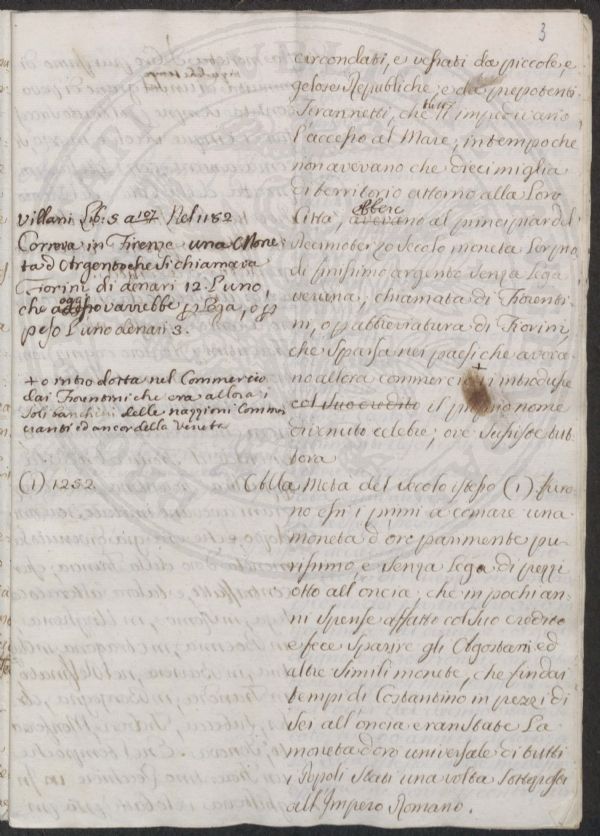 3
circondati, e vessati da piccole, e
gelose Republiche, e da prepotenti
Tirannetti, che li impedivano
l'accesso al Mare, in tempo che
non avevano che dieci miglia
di territorio attorno alla Loro
Città, ebbero avevano al principiar del
Decimoterzo secolo moneta
di finissimo argento senza lega
veruna, chiamata di Fiorenti
ni, o p abbreviatura di Fiorini,
che sparsa nei paesi che aveva
no allora commercio + introdusse
col suo credito il nome
divenuto celebre, ove sussiste tut
tora
Villani Lib: 5 Nel 1182
Correva in Firenze una Mone
ta d'Argento che si chiamava
Fiorini di denari 12. l'uno
che oggi adesso varrebbe p Lega, o p
peso l'uno denari 3.
+ o introdotta nel Commercio
dai Fiorentini che era allora i
soli banchieri delle nazzioni Comm
cianti ed ancor della Veneta
(1) 1252
Alla Metà del secolo istesso (1) furo
no essi i primi a coniare una
moneta d'oro parimente pu
rissimo, e senza Lega di pezzi
otto all'oncia; che in pochi an
ni spense affatto col suo credito
e fece sparire gli Agostari ed
altre simili monete, che fin dai
tempi di Costantino in pezzi di
sei all'oncia eran state La
moneta d'oro universale di tutti
i Popoli stati una volta sottoposti
all'Impero Romano.